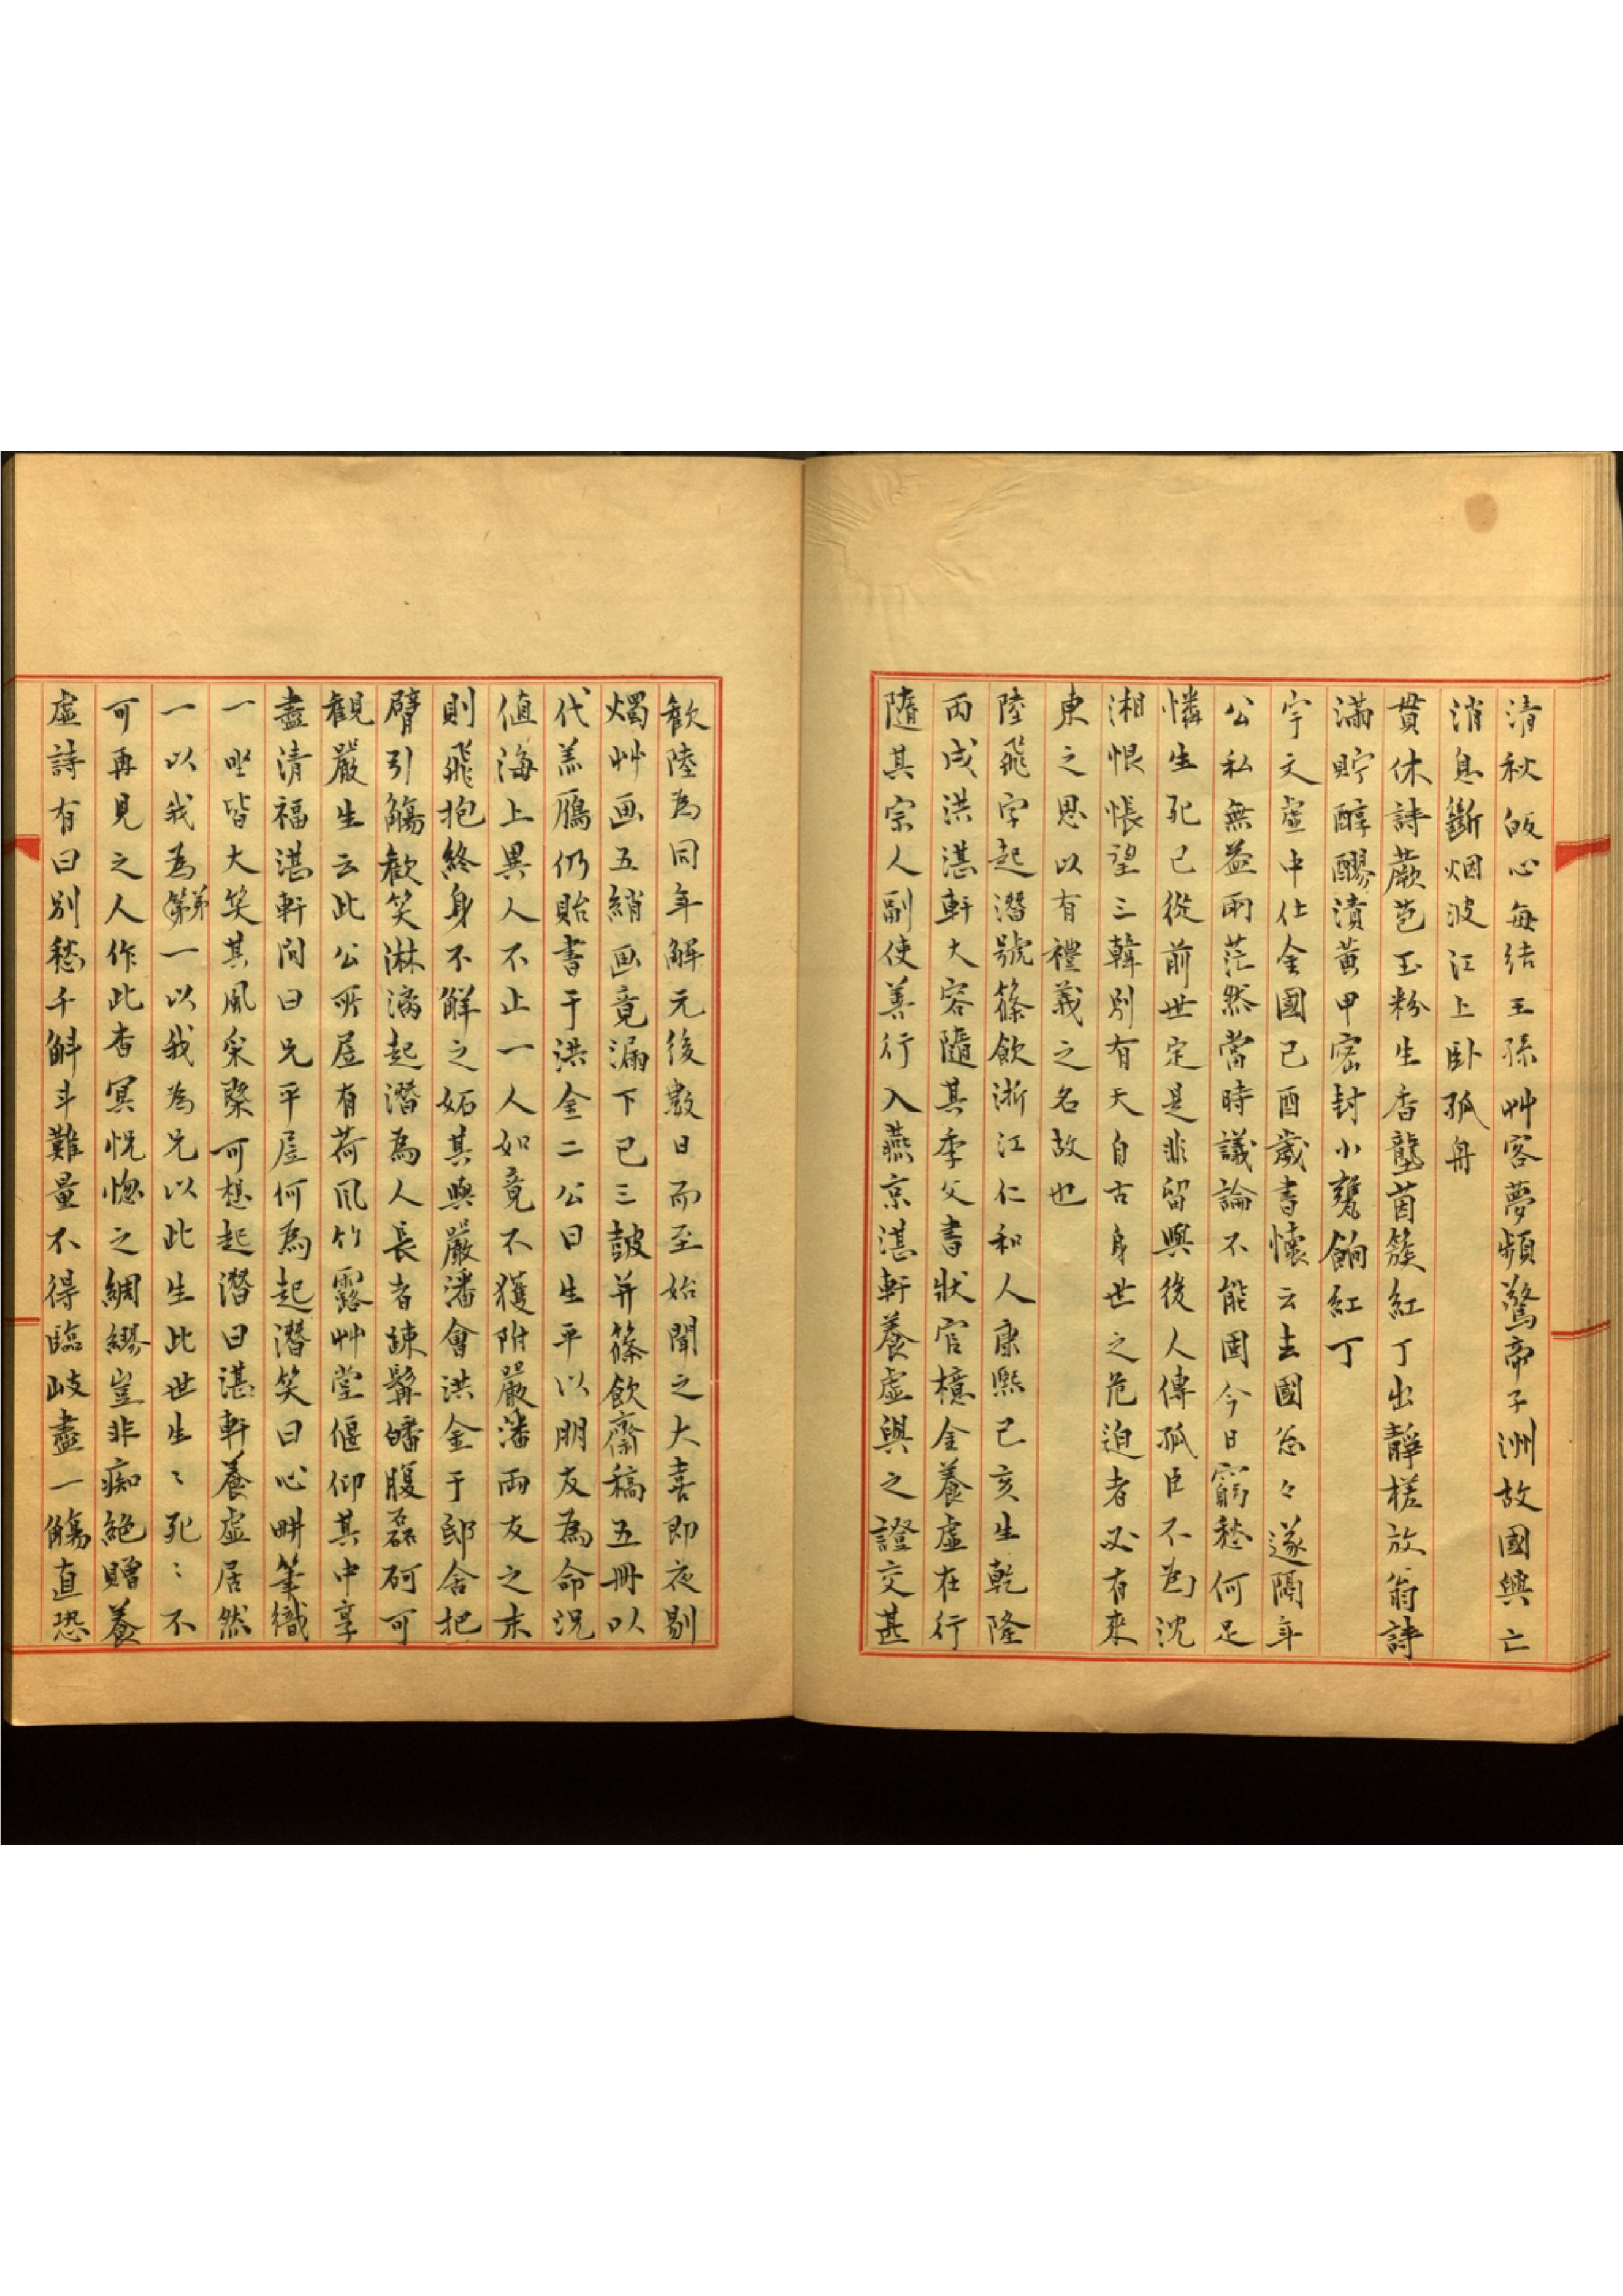 清秋皈心每結王孫艸客夢頻驚帝子洲故國興亡
消息斷烟波江上卧孤舟
貫休詩蕨苞玉粉生香壟茵簇紅丁出靜槎放翁詩
滿貯醇醪漬黃甲密封小甕餉紅丁
宇文虛中仕金國己酉歲書懷云去國怱々遂隔年
公私無益兩茫然當時議論不能固今日窮愁何足
憐生死已從前世定是非留與後人傳孤臣不為沈
湘恨悵望三韓別有天自古身世之危迫者必有來
東之思以有禮義之名故也
陸飛字起潛號篠飲浙江仁和人康熙己亥生乾隆
丙戌洪湛軒大容隨其季父書狀官檍金養虛在行
隨其宗人副使善行入燕京湛軒養虛與之證交甚
歡陸為同年解元後數日而至始聞之大喜即夜剔
燭艸画五綃画竟漏下已三皷并篠飲齋稿五冊以
代羔鴈仍貽書于洪金二公曰生平以朋友為命況
值海上異人不止一人如竟不獲附嚴潘兩友之末
則飛抱終身不解之妬其與嚴潘會洪金于邸舍把
臂引觴歡笑淋漓起潛為人長者疎髯皤腹磊砢可
觀嚴生云此公所居有荷風竹露艸堂偃仰其中享
盡清福湛軒問曰兄平居何為起潛笑曰心畊筆織
一坐皆大笑其風采槩可想起潛曰湛軒養虛居然
一以我為弟一以我為兄以此生此世生〻死〻不
可再見之人作此杳冥怳惚之綢繆豈非痴絕贈養
虛詩有曰別愁千斛斗難量不得臨岐盡一觴直恐